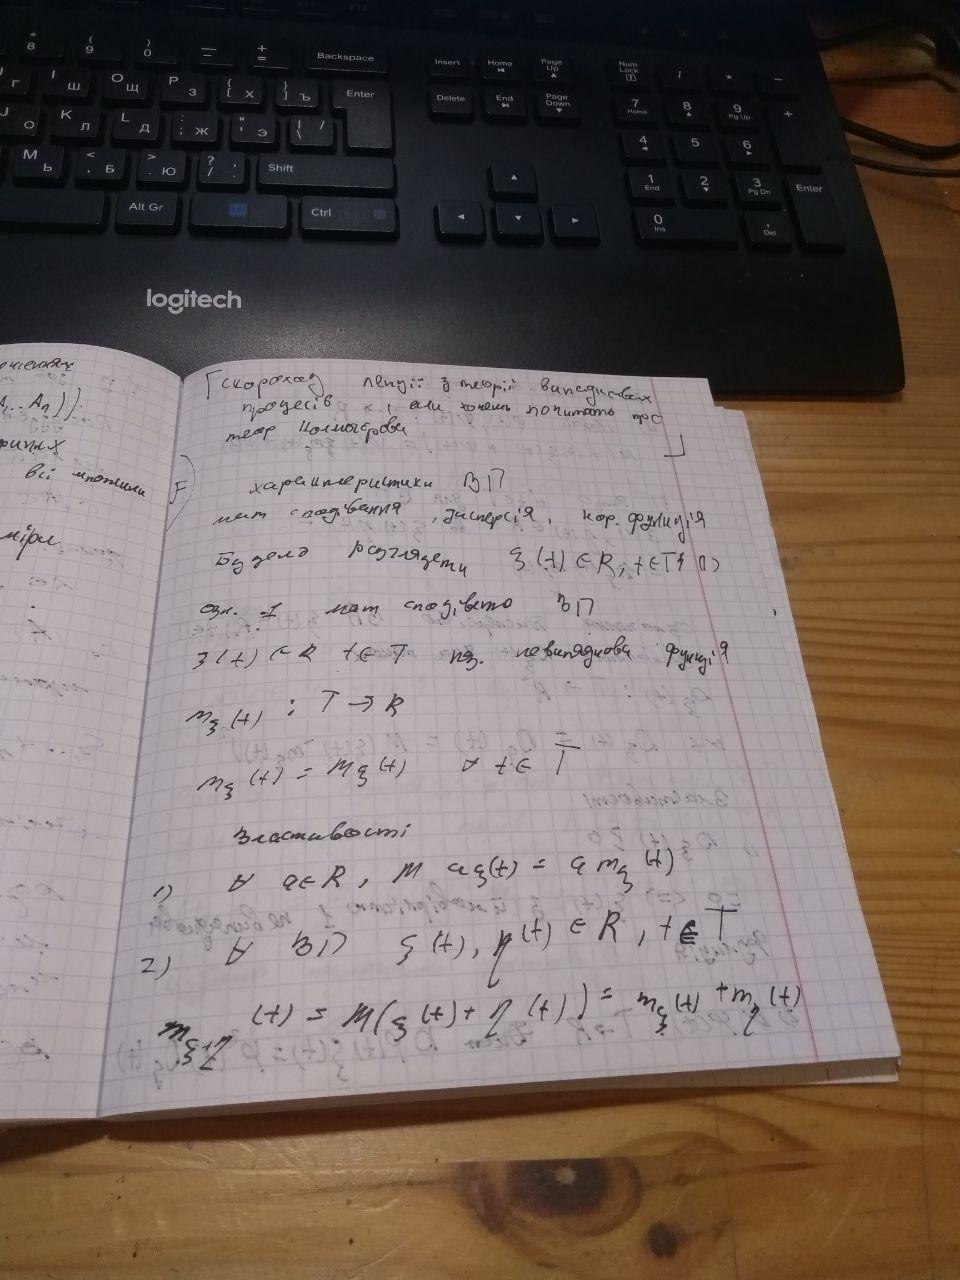 *
8
(
9
)
0
—
=
+
=
Backspace
Insert
Home
Page Up
Num Lock
/
*
-
Г
Ш
O
Щ
P
З
{
[ Х
}
] Ъ
Enter
Delete
End
Page Down
7
Home
8
9
Pg Up
+
J
О
K
Л
L
Д
:
; Ж
"
' Э
|
\ /
4
5
6
M
Ь
<
, Б
>
. Ю
?
/ .
Shift
1
End
2
3
Pg Dn
Enter
Alt Gr
Ctrl
0
Ins
.
Del
logitech
[скороход лекції з теорії випадкових
процесів, если хочешь почитать про
теор Колмогорова ]
A₁ ... Aₙ))
всі множини
міри
характеристики ВП
мат сподівання, дисперсія, кор. функція
Будемо розглядати ξ(t) ∈ R, t ∈ T
озн. 1 мат сподівання ВП
ξ(t) ∈ R t ∈ T наз. невипадкова функція
m_ξ(t) : T → R
m_ξ(t) = Mξ(t) ∀ t ∈ T
Властивості
1) ∀ a ∈ R, M aξ(t) = a m_ξ(t)
2) ∀ ВП ξ(t), η(t) ∈ R, t ∈ T
m_ξ+η (t) = M(ξ(t) + η(t)) = m_ξ(t) + m_η(t)